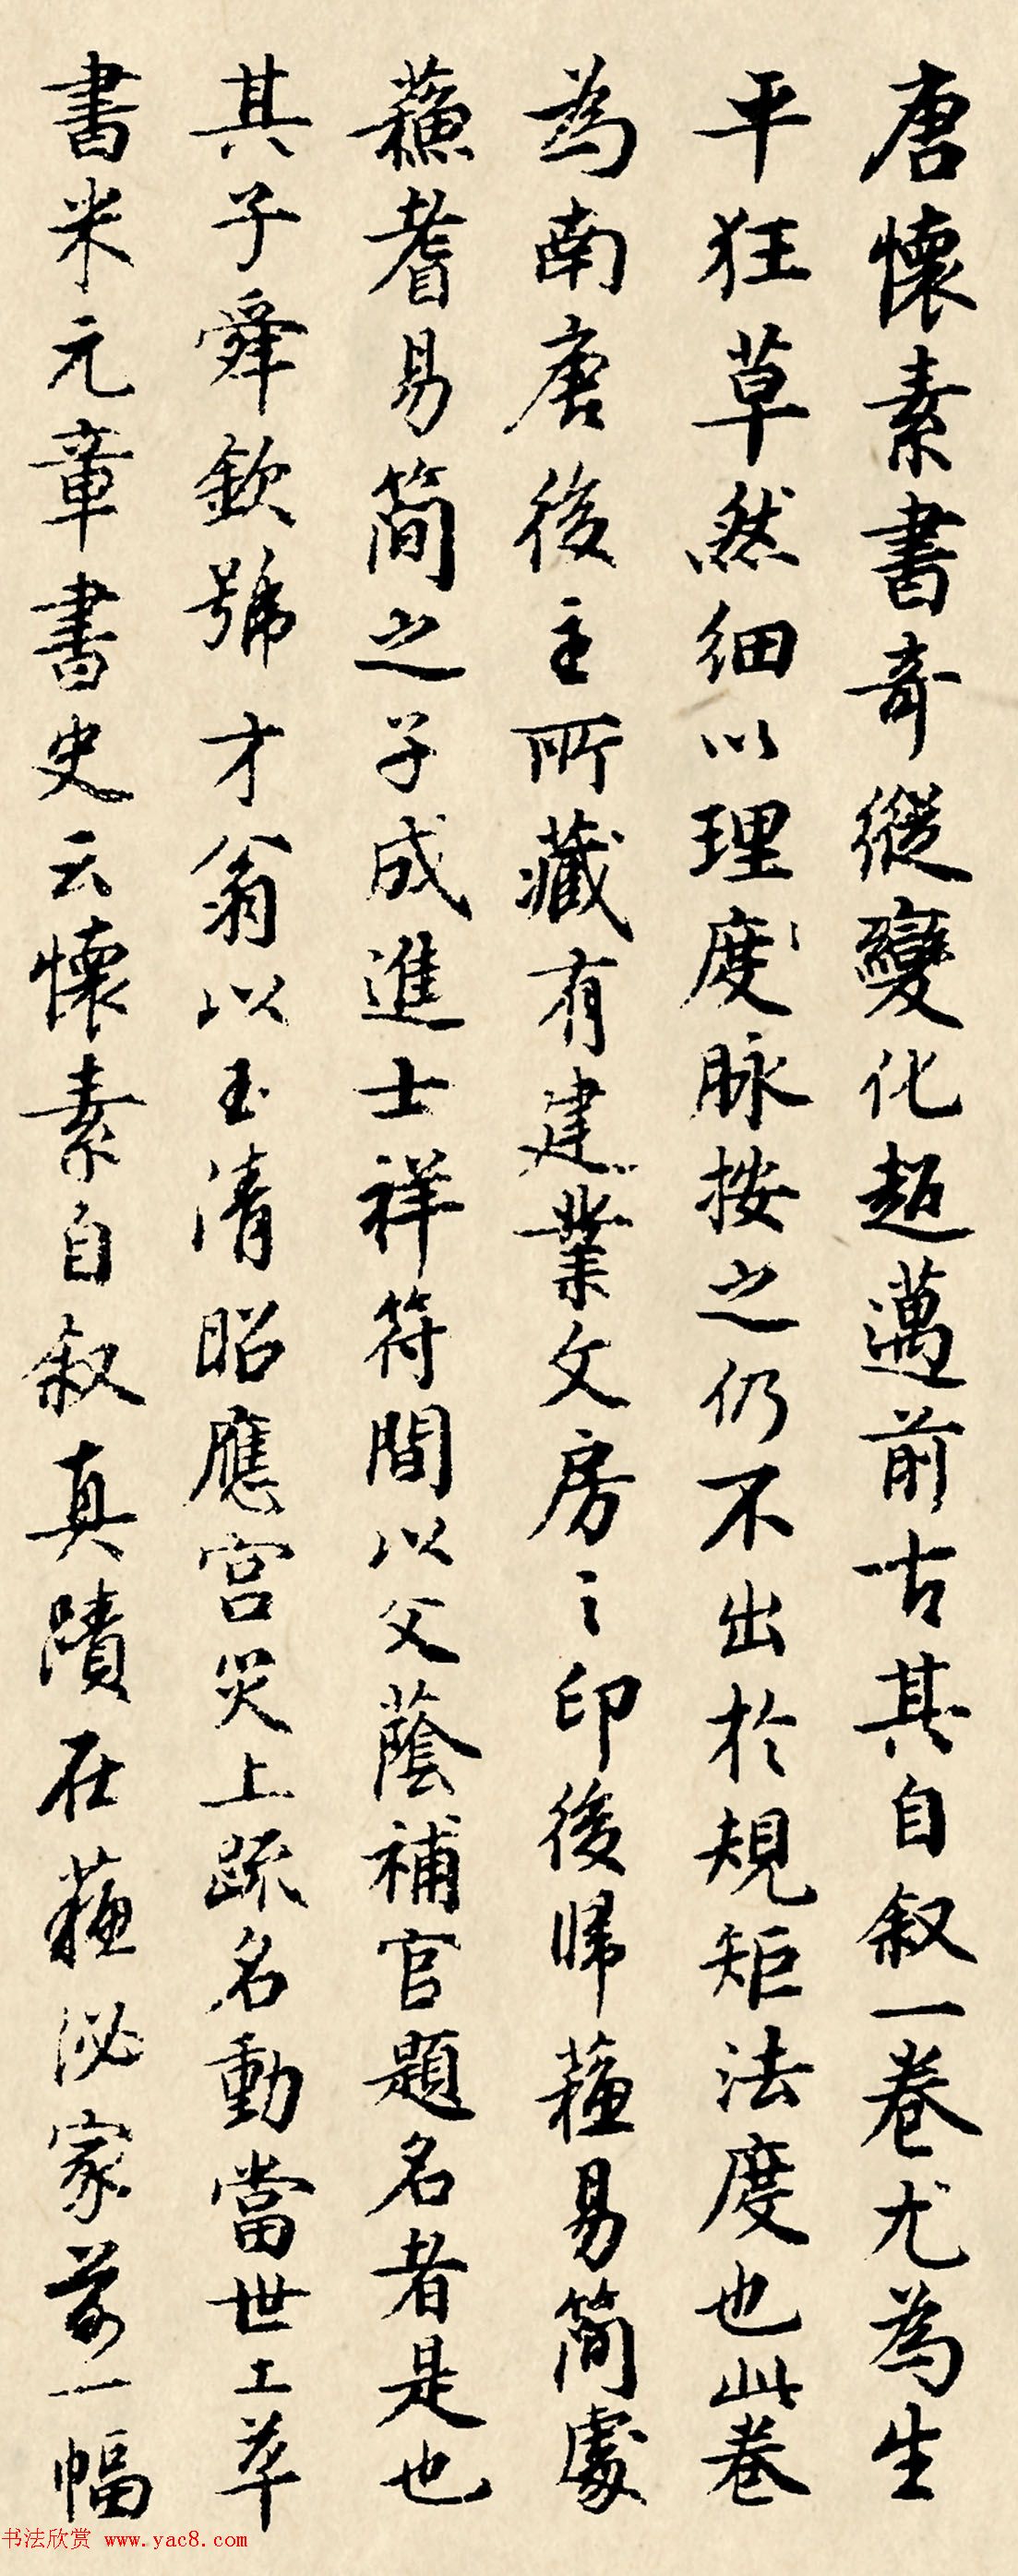 唐懷素書奇縱變化超邁前古其自叙一卷尤為生
平狂草然細以理度脉按之仍不出於規矩法度也此卷
為南唐後主所藏有建業文房之印後歸蘓易簡處
蘓耆易簡之子成進士祥符間以父蔭補官題名者是也
其子舜欽號才翁以玉清昭應宮災上疏名動當世工草
書米元章書史云懷素自叙真蹟在蘓泌家前一幅
书法欣赏 www.yac8.com